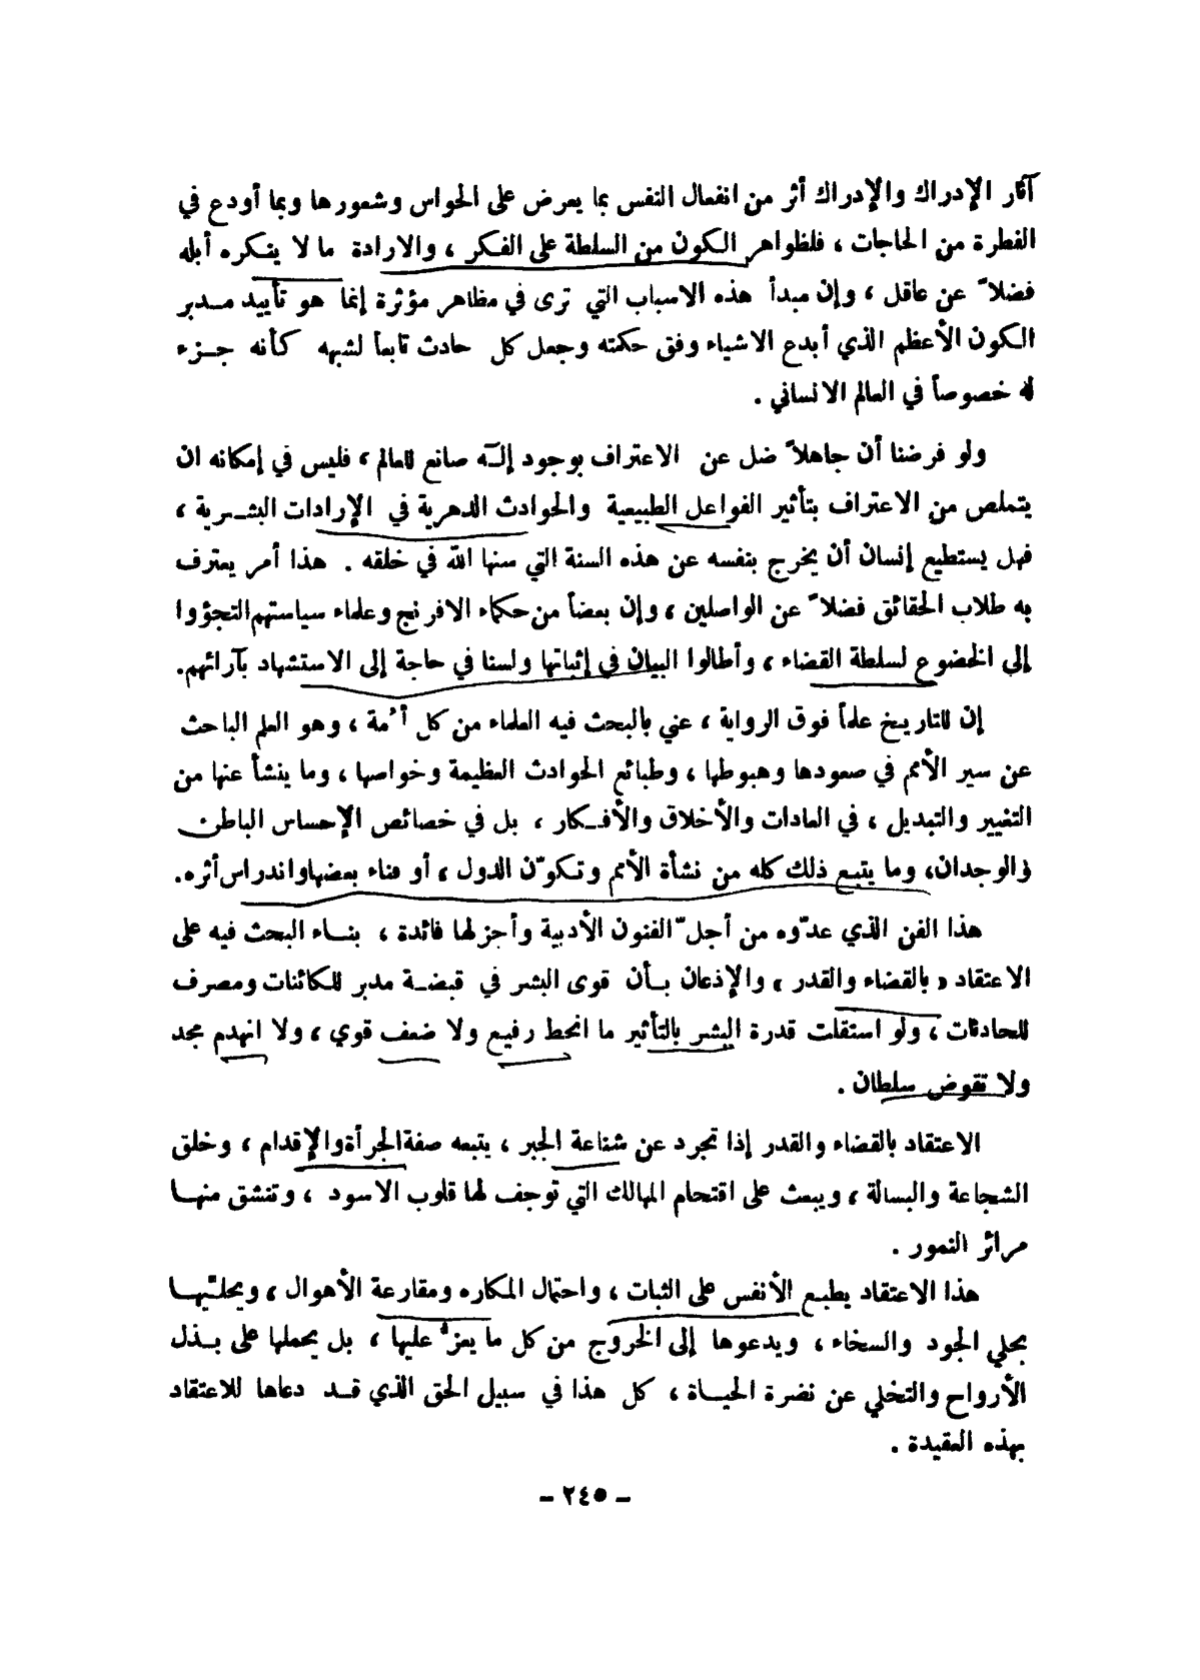 آثار الإدراك والإدراك أثر من انفعال النفس بما يعرض على الحواس وشعورها وبما أودع في
الفطرة من الحاجات ، فلظواهر الكون من السلطة على الفكر ، والارادة ما لا ينكره أبله
فضلاً عن عاقل ، وإن مبدأ هذه الاسباب التي ترى في مظاهر مؤثرة إنما هو تأييد مدبر
الكون الأعظم الذي أبدع الاشياء وفق حكمته وجعل كل حادث تابعاً لشبهه كأنه جزء
له خصوصاً في العالم الانساني .
ولو فرضنا أن جاهلاً ضل عن الاعتراف بوجود إلـٓه صانع للعالم ، فليس في إمكانه ان
يتملص من الاعتراف بتأثير الفواعل الطبيعية والحوادث الدهرية في الإرادات البشرية ،
فهل يستطيع إنسان أن يخرج بنفسه عن هذه السنة التي سنها الله في خلقه . هذا أمر يعترف
به طلاب الحقائق فضلاً عن الواصلين ، وإن بعضاً من حكماء الافرنج وعلماء سياستهم التجؤوا
إلى الخضوع لسلطة القضاء ، وأطالوا البيان في إثباتها ولسنا في حاجة إلى الاستشهاد بآرائهم.
إن للتاريخ علماً فوق الرواية ، عني بالبحث فيه العلماء من كل أُمة ، وهو العلم الباحث
عن سير الأمم في صعودها وهبوطها ، وطبائع الحوادث العظيمة وخواصها ، وما ينشأ عنها من
التغيير والتبديل ، في العادات والأخلاق والأفكار ، بل في خصائص الإحساس الباطن
والوجدان، وما يتبع ذلك كله من نشأة الأمم وتكوّن الدول ، أو فناء بعضها واندراس أثره.
هذا الفن الذي عدّوه من أجلّ الفنون الأدبية وأجزلها فائدة ، بناء البحث فيه على
الاعتقاد « بالقضاء والقدر ، والإذعان بأن قوى البشر في قبضة مدبر للكائنات ومصرف
للحادثات ، ولو استقلت قدرة البشر بالتأثير ما انحط رفيع ولا ضعف قوي ، ولا انهدم مجد
ولا تقوض سلطان .
الاعتقاد بالقضاء والقدر إذا تجرد عن شناعة الجبر ، يتبعه صفة الجرأة والإقدام ، وخلق
الشجاعة والبسالة ، ويبعث على اقتحام المهالك التي توجف لها قلوب الاسود ، وتنشق منها
مرائر النمور .
هذا الاعتقاد يطبع الأنفس على الثبات ، واحتمال المكاره ومقارعة الأهوال ، ويحلّيها
بحلي الجود والسخاء ، ويدعوها إلى الخروج من كل ما يعزُّ عليها ، بل يحملها على بذل
الأرواح والتخلي عن نضرة الحياة ، كل هذا في سبيل الحق الذي قد دعاها للاعتقاد
بهذه العقيدة .
– ٢٤٥ –